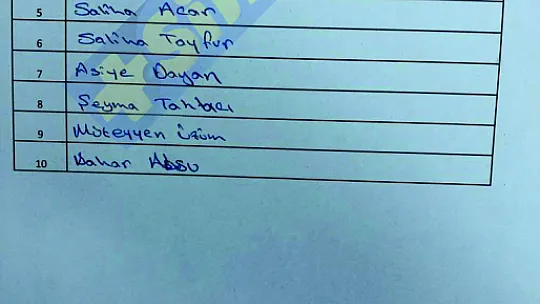 5 Saliha Acar
6 Saliha Tayfur
7 Asiye Dayan
8 Şeyma Tahtacı
9 Müzeyyen Üzüm
10 Bahar